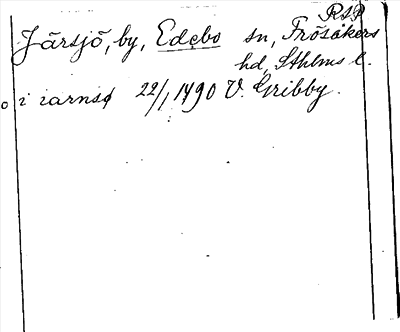 RSP
Järsjö, by, Edebo sn, Frösåkers
hd, Sthlms l.
i iarnsø 22/1 1490 V. Gribby.